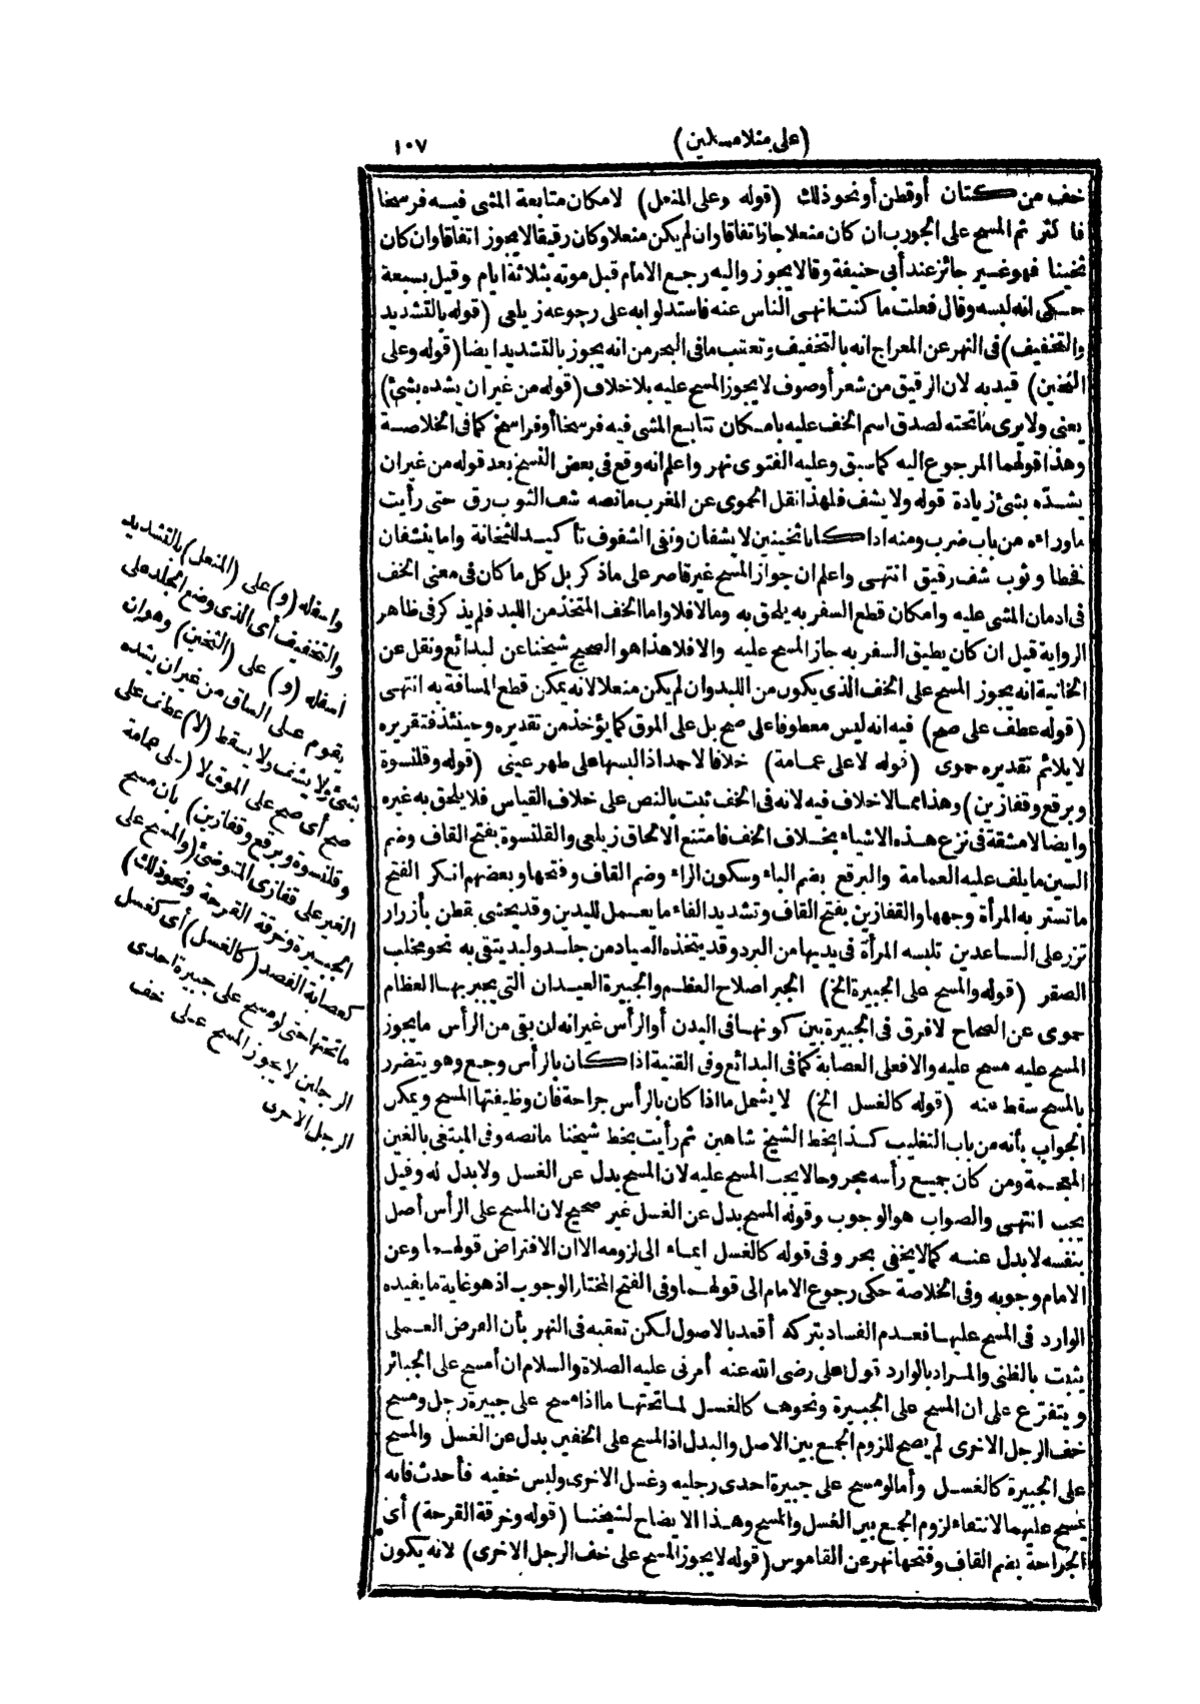 (على منلا مسكين) ١٠٧
خف من كتان أو قطن أو نحو ذلك (قوله وعلى المنعل) لامكان متابعة المشى فيه فرسخا
فاكثر ثم المسح على الجورب ان كان منعلا جاز اتفاقا وان لم يكن منعلا وكان رقيقا لا يجوز اتفاقا وان كان
ثخينا فهو غير جائز عند أبى حنيفة وقالا يجوز واليه رجع الامام قبل موته بثلاثة ايام وقيل بسبعة
حكى انه لبسه وقال فعلت ما كنت انهى الناس عنه فاستدلوا به على رجوعه زيلعى (قوله بالتشديد
والتخفيف) فى النهر عن المعراج انه بالتخفيف وتعقب ما فى البحر من انه يجوز بالتشديد ايضا (قوله وعلى
الثخين) قيد به لان الرقيق من شعر أو صوف لا يجوز المسح عليه بلا خلاف (قوله من غير ان يشده بشئ)
يعنى ولا يرى ما تحته لصدق اسم الخف عليه بامكان تتابع المشى فيه فرسخا أو فراسخ كما فى الخلاصة
وهذا قولهما المرجوع اليه كما سبق وعليه الفتوى نهر واعلم انه وقع فى بعض النسخ بعد قوله من غير ان
يشده بشئ زيادة قوله ولا يشف فلهذا نقل الحموى عن المغرب ما نصه شف الثوب رق حتى رأيت
ما وراءه من باب ضرب ومنه اذا كانا ثخينين لا يشفان ونفى الشفوف تأكيد للثخانة واما ينشفان
فخطا وثوب شف رقيق انتهى واعلم ان جواز المسح غير قاصر على ما ذكر بل كل ما كان فى معنى الخف
فى ادمان المشى عليه وامكان قطع السفر به يلحق به وما لا فلا واما الخف المتخذ من اللبد فلم يذكر فى ظاهر
الرواية قيل ان كان يطيق السفر به جاز المسح عليه والا فلا هذا هو الصحيح شيخنا عن البدائع ونقل عن
الخانية انه يجوز المسح على الخف الذى يكون من اللبد وان لم يكن منعلا لانه يمكن قطع المسافة به انتهى
(قوله عطف على صح) فيه انه ليس معطوفا على صح بل على الموق كما يؤخذ من تقديره وحينئذ فتقريره
لا يلائم تقديره حموى (قوله لا على عمامة) خلافا لاحمد اذا لبسها على طهر عينى (قوله وقلنسوة
وبرقع وقفازين) وهذا مما لا خلاف فيه لانه فى الخف ثبت بالنص على خلاف القياس فلا يلحق به غيره
وايضا لا مشقة فى نزع هذه الاشياء بخلاف الخف فامتنع الالحاق زيلعى والقلنسوة بفتح القاف وضم
السين ما يلف عليه العمامة والبرقع بضم الباء وسكون الراء وضم القاف وفتحها وبعضهم انكر الفتح
ما تستر به المرأة وجهها والقفازين بفتح القاف وتشديد الفاء ما يعمل لليدين وقد يحشى بقطن بأزرار
تزر على الساعدين تلبسه المرأة فى يديها من البرد وقد يتخذه الصياد من جلد ولبد يتقى به نحو مخلب
الصقر (قوله والمسح على الجبيرة الخ) الجبر اصلاح العظم والجبيرة العيدان التى يجبر بها العظام
حموى عن الصحاح لا فرق فى الجبيرة بين كونها فى البدن أو الرأس غير انه لن بقى من الرأس ما يجوز
المسح عليه مسح عليه والا فعلى العصابة كما فى البدائع وفى القنية اذا كان بالرأس وجع وهو يتضرر
بالمسح سقط عنه (قوله كالغسل الخ) لا يشمل ما اذا كان بالرأس جراحة فان وظيفتها المسح ويمكن
الجواب بأنه من باب التغليب كذا بخط الشيخ شاهين ثم رأيت بخط شيخنا ما نصه وفى المبتغى بالغين
المعجمة ومن كان جميع رأسه مجروحا لا يجب المسح عليه لان المسح بدل عن الغسل ولا بدل له وقيل
يجب انتهى والصواب هو الوجوب وقوله المسح بدل عن الغسل غير صحيح لان المسح على الرأس أصل
بنفسه لا بدل عنه كما لا يخفى بحر وفى قوله كالغسل ايماء الى لزومه الا ان الافتراض قولهما وعن
الامام وجوبه وفى الخلاصة حكى رجوع الامام الى قولهما وفى الفتح المختار الوجوب اذ هو غاية ما يفيده
الوارد فى المسح عليها فعدم الفساد بتركه أقعد بالاصول لكن تعقبه فى النهر بأن الفرض العملى
يثبت بالظنى والمراد بالوارد قول على رضى الله عنه أمرنى عليه الصلاة والسلام ان أمسح على الجبائر
ويتفرع على ان المسح على الجبيرة ونحوها كالغسل لما تحتها ما اذا مسح على جبيرة رجل ومسح
خف الرجل الاخرى لم يصح للزوم الجمع بين الاصل والبدل اذ المسح على الخفين بدل عن الغسل والمسح
على الجبيرة كالغسل وأما لو مسح على جبيرة احدى رجليه وغسل الاخرى ولبس خفيه فأحدث فانه
يمسح عليهما لانتفاء لزوم الجمع بين الغسل والمسح وهذا الايضاح لشيخنا (قوله وخرقة القرحة) أى
الجراحة بضم القاف وفتحها نهر عن القاموس (قوله لا يجوز المسح على خف الرجل الاخرى) لانه يكون
واسفله (و) على (المنعل) بالتشديد
والتخفيف أى الذى وضع الجلد على
أسفله (و) على (الثخين) وهو ان
يقوم على الساق من غير ان يشده
بشئ ولا يشف ولا يسقط (لا) عطف على
صح أى صح على الموق لا (على عمامة
وقلنسوة وبرقع وقفازين) بان مسح
الغير على قفازى المتوضئ (والمسح على
الجبيرة وخرقة القرحة ونحو ذلك)
كعصابة الفصد (كالغسل) أى كغسل
ما تحتها حتى لو مسح على جبيرة احدى
الرجلين لا يجوز المسح على خف
الرجل الاخرى